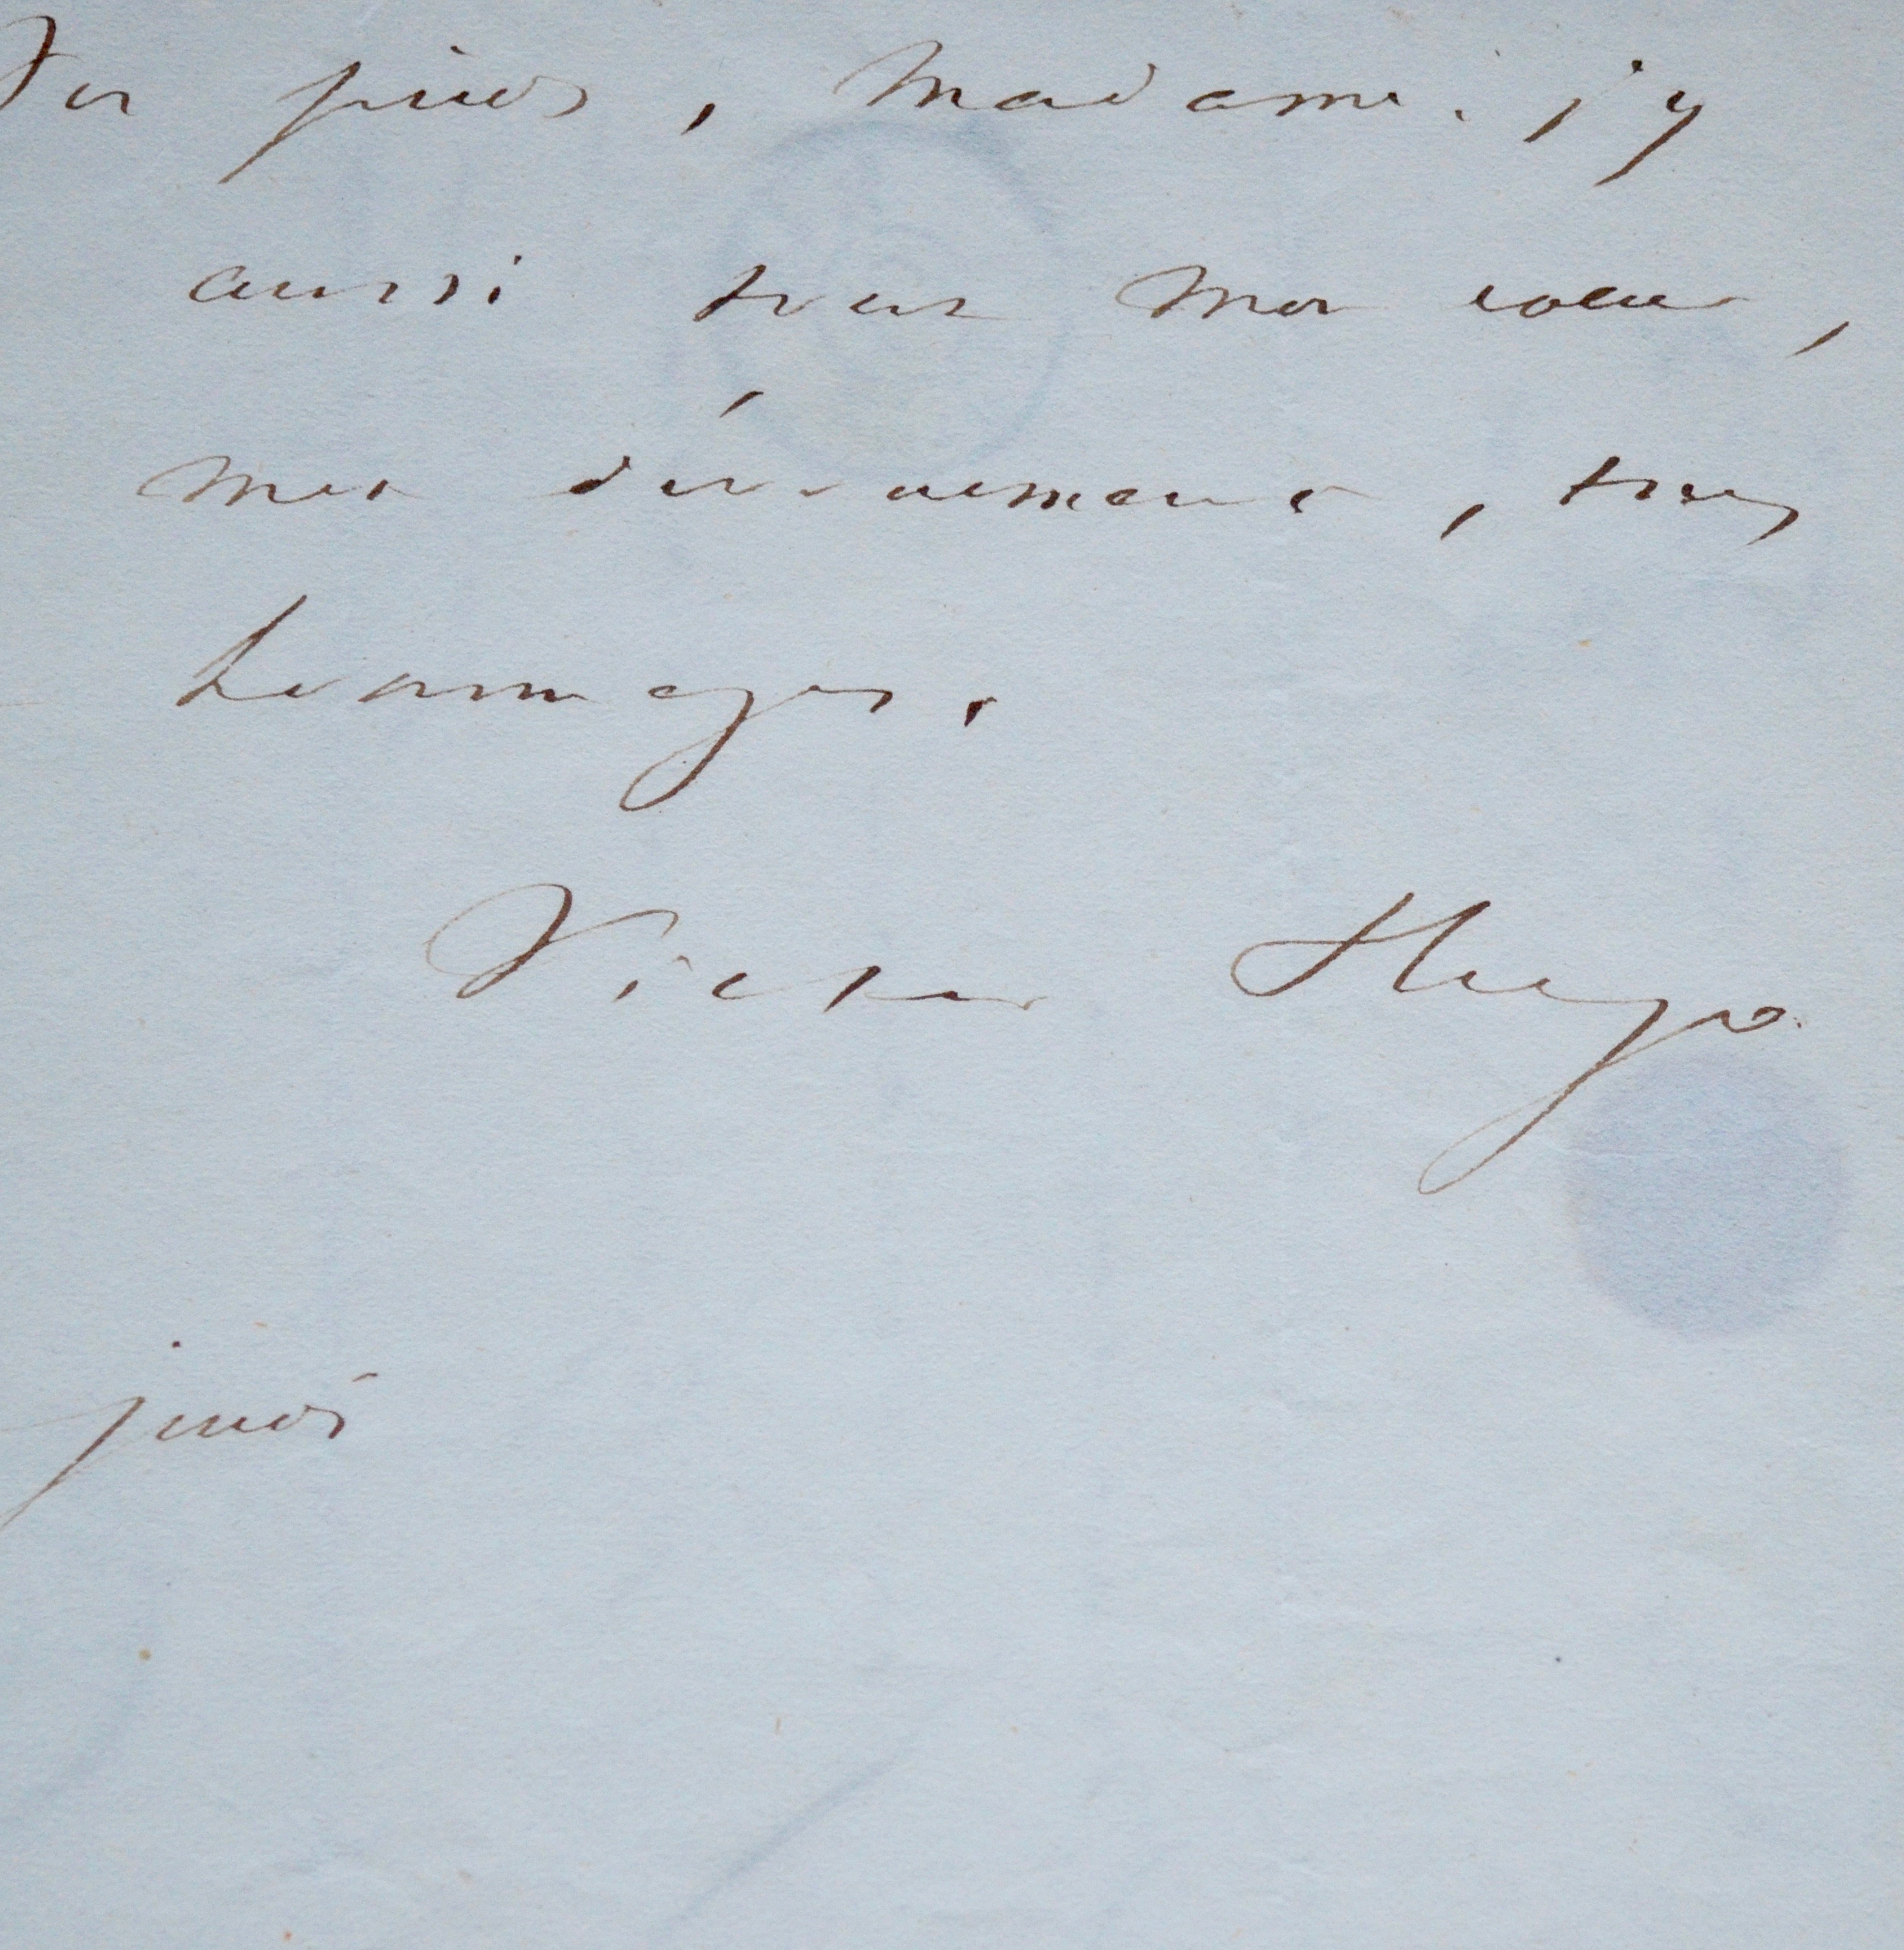 vos pieds, Madame. j'y
aussi tout mon cœur,
mon dévouement, tous
hommages.
Victor Hugo
jeudi